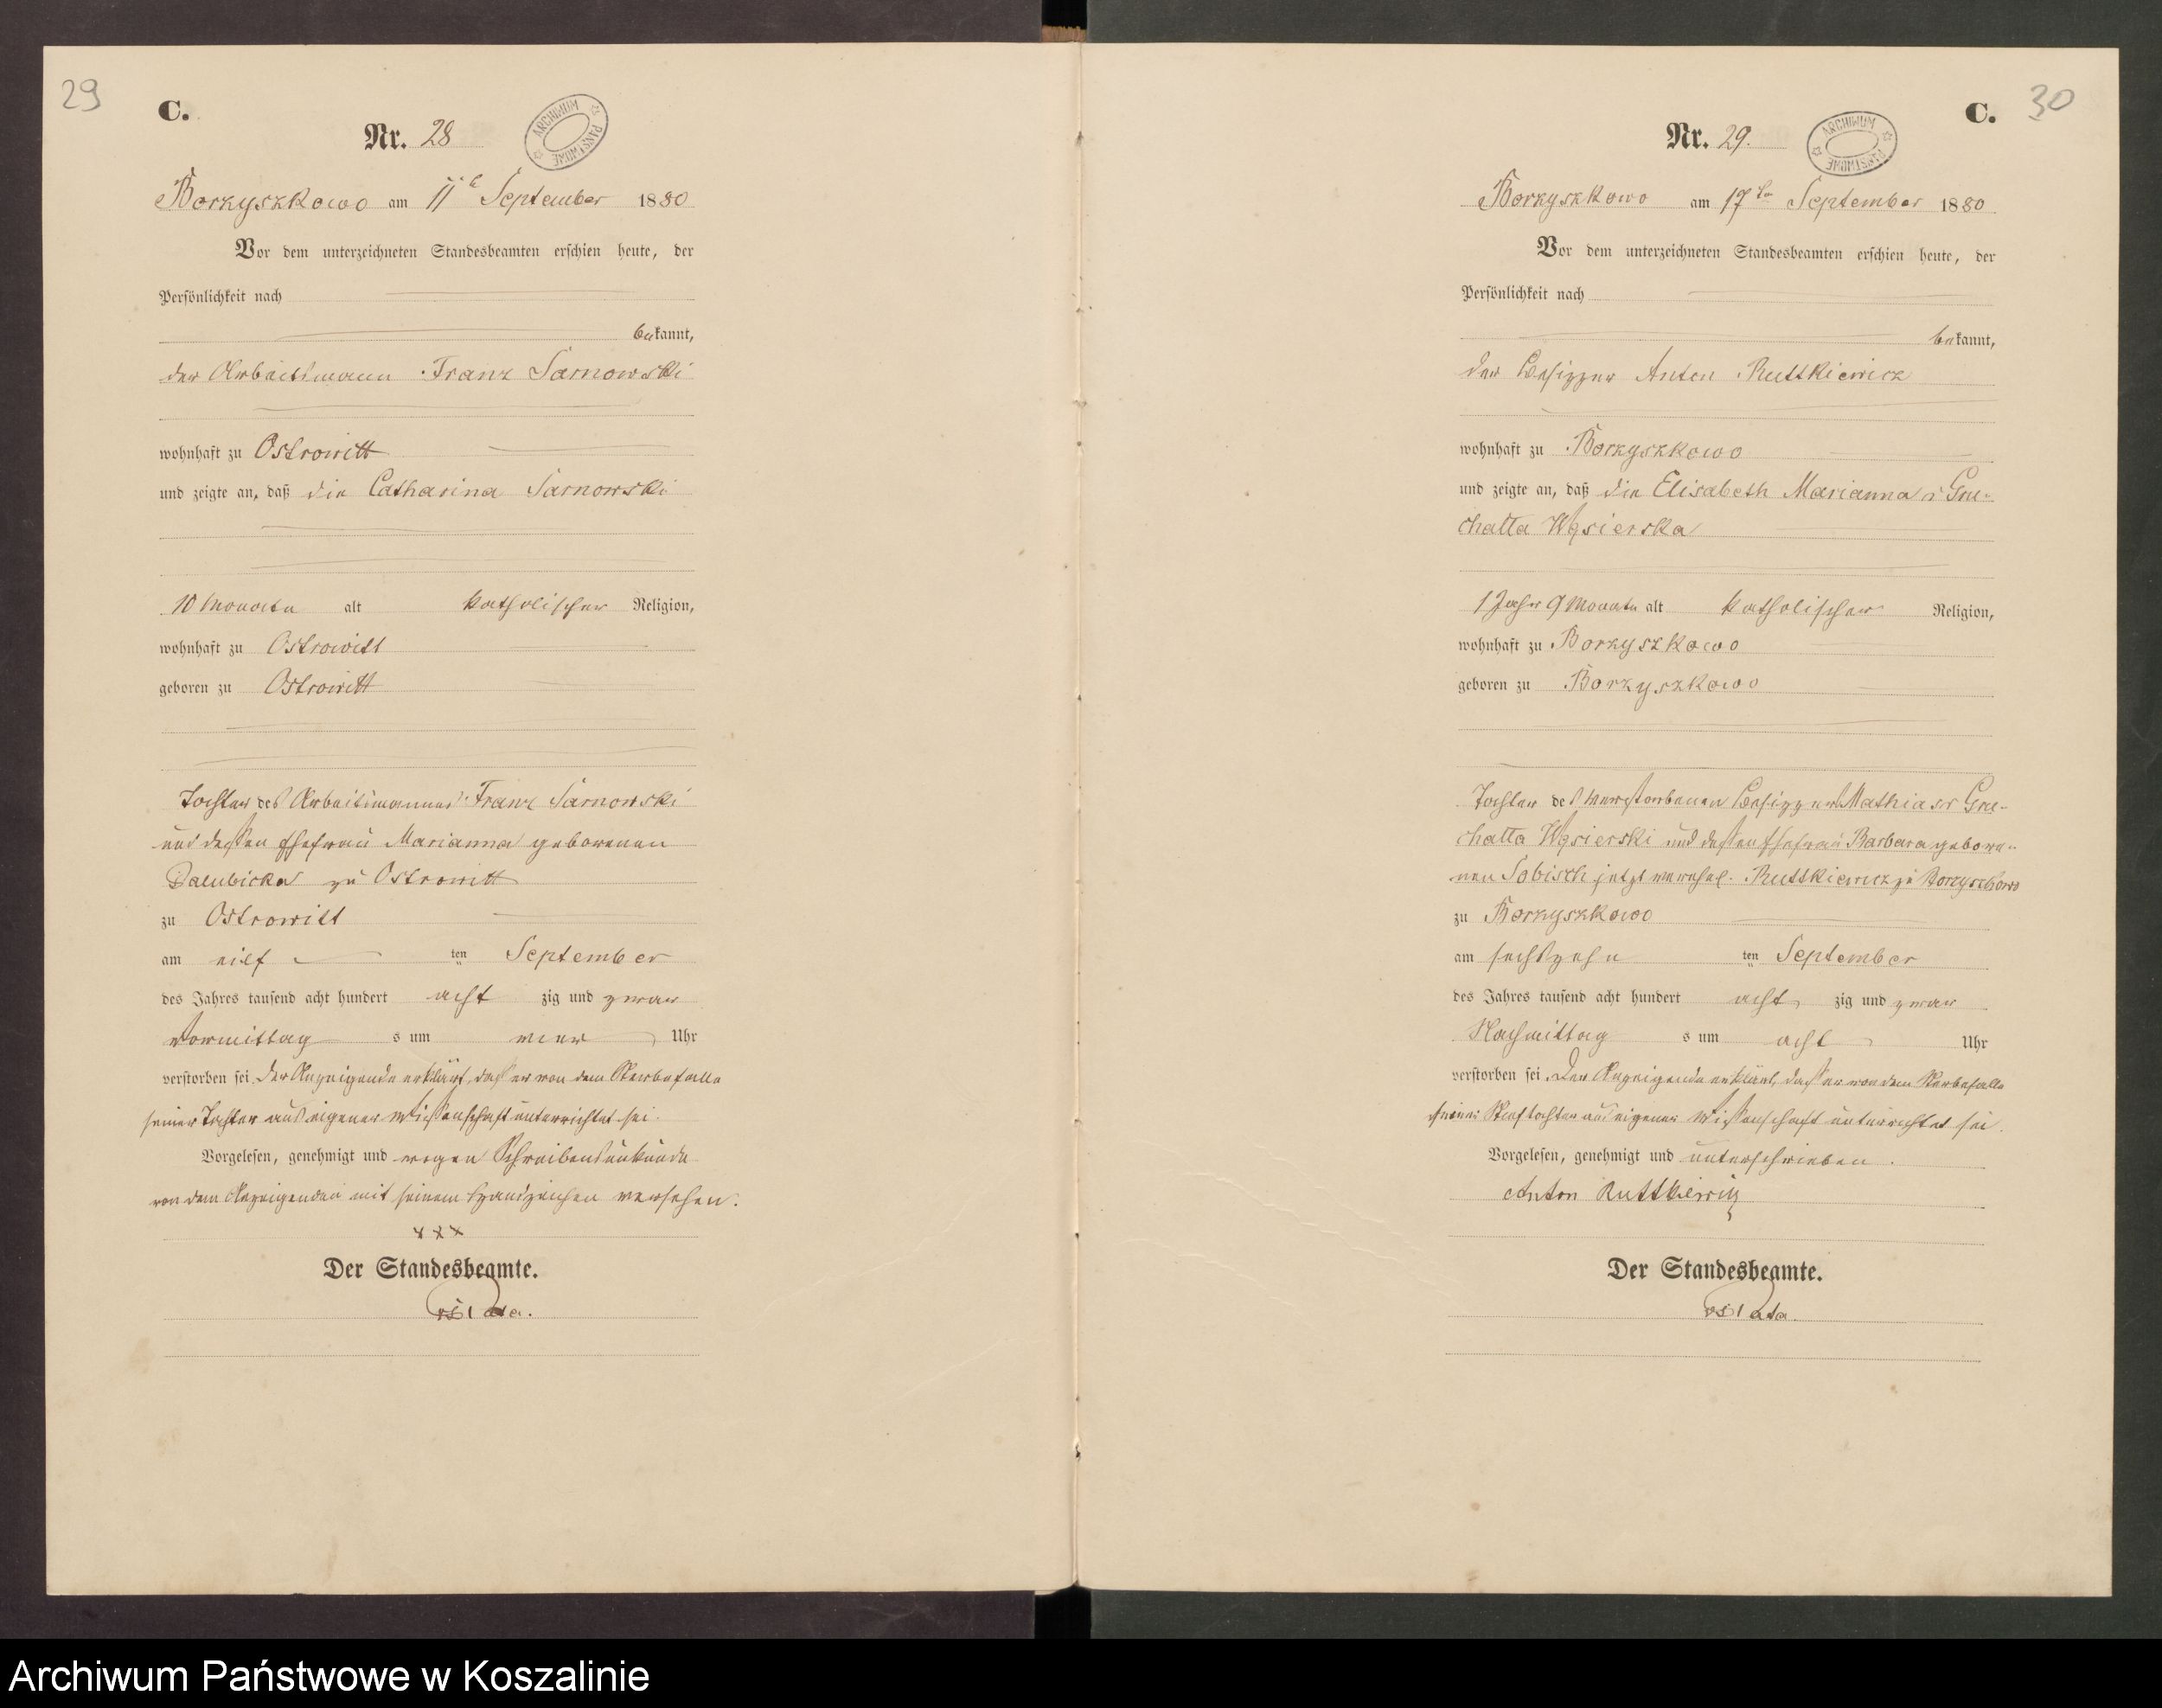 29
C.
Nr. 28
ARCHIWUM PAŃSTWOWE
Borzyszkowo am 11t September 1880
Vor dem unterzeichneten Standesbeamten erschien heute, der
Persönlichkeit nach
bekannt,
der Arbeitsmann Franz Sarnowski
wohnhaft zu Ostrowitt
und zeigte an, daß die Catharina Sarnowski
10 Monate alt katholischer Religion,
wohnhaft zu Ostrowitt
geboren zu Ostrowitt
Tochter des Arbeitsmannes Franz Sarnowski
und dessen Ehefrau Marianna geborenen
zu Ostrowitt
zu Ostrowitt
am eilf ten September
des Jahres tausend acht hundert acht zig und zwar
Vormittag s um vier Uhr
verstorben sei. Der Anzeigende erklärt, daß er von dem Sterbefalle
seiner Tochter aus eigener Wissenschaft unterrichtet sei.
Vorgelesen, genehmigt und wegen Schreibensunkunde
von dem Anzeigenden mit seinem Handzeichen versehen.
xxx
Der Standesbeamte.
C.
30
Nr. 29.
ARCHIWUM PAŃSTWOWE
Borzyszkowo am 17ten September 1880
Vor dem unterzeichneten Standesbeamten erschien heute, der
Persönlichkeit nach
bekannt,
der Besitzer Anton Ruttkiewicz
wohnhaft zu Borzyszkowo
und zeigte an, daß die Elisabeth Marianna v Gru-
challa Wąsierska
1 Jahr 9 Monate alt katholischer Religion,
wohnhaft zu Borzyszkowo
geboren zu Borzyszkowo
Tochter des verstorbenen Besitzers Mathias v Gru-
challa Wąsierski und dessen Ehefrau Barbara gebore-
nen Sobisch jetzt verehel. Ruttkiewicz zu Borzyszkowo
zu Borzyszkowo
am sechszehn ten September
des Jahres tausend acht hundert acht zig und zwar
Nachmittag s um acht Uhr
verstorben sei. Der Anzeigende erklärt, daß er von dem Sterbefalle
seiner Stieftochter aus eigener Wissenschaft unterrichtet sei.
Vorgelesen, genehmigt und unterschrieben.
Anton Ruttkiewicz
Der Standesbeamte.
Archiwum Państwowe w Koszalinie